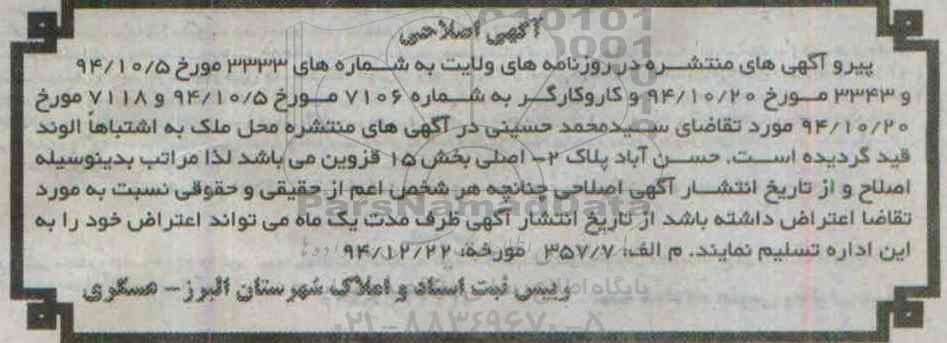 آگهی اصلاحی
پیرو آگهی های منتشره در روزنامه های ولایت به شماره های ۳۳۳۳ مورخ ۹۴/۱۰/۵
و ۳۳۴۳ مورخ ۹۴/۱۰/۲۰ و کاروکارگر به شماره ۷۱۰۶ مورخ ۹۴/۱۰/۵ و ۷۱۱۸ مورخ
۹۴/۱۰/۲۰ مورد تقاضای سیدمحمد حسینی در آگهی های منتشره محل ملک به اشتباهاً الوند
قید گردیده است. حسن آباد پلاک ۲- اصلی بخش ۱۵ قزوین می باشد لذا مراتب بدینوسیله
اصلاح و از تاریخ انتشار آگهی اصلاحی چنانچه هر شخص اعم از حقیقی و حقوقی نسبت به مورد
تقاضا اعتراض داشته باشد از تاریخ انتشار آگهی ظرف مدت یک ماه می تواند اعتراض خود را به
این اداره تسلیم نمایند. م الف: ۳۵۷/۷ مورخه: ۹۴/۱۲/۲۲
رییس ثبت اسناد و املاک شهرستان البرز - عسگری
ParsNamadData
۰۲۱-۸۸۳۴۹۶۷۰-۵